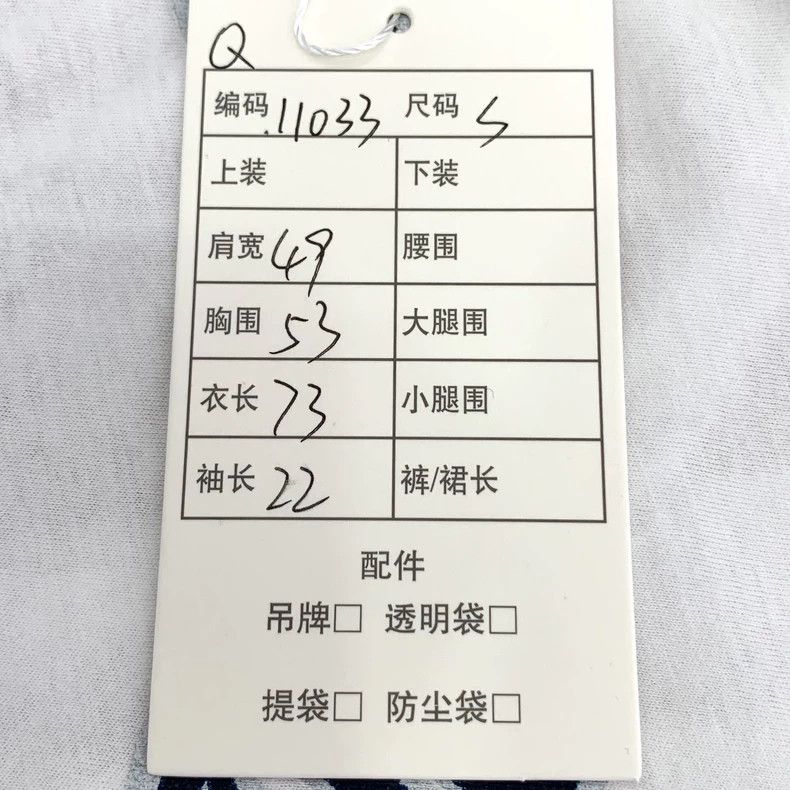 Q
编码 .11033 尺码 S
上装 下装
肩宽 49 腰围
胸围 53 大腿围
衣长 73 小腿围
袖长 22 裤/裙长
配件
吊牌□ 透明袋□
提袋□ 防尘袋□